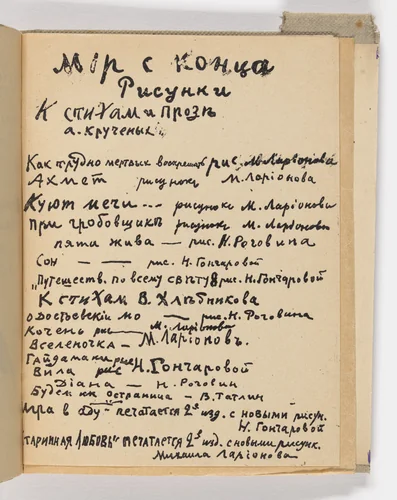 Мір с конца
Рисунки
К стихам и прозѣ
а. Крученых
Как трудно мертвых воскрешать рис. М. Ларіонова
Ахмет рисунокъ М. Ларіонова
Куют мечи... рисунокъ М. Ларіонова
При гробовщикѣ рисунокъ М. Ларіонова
пята жива — рис. Н. Роговина
Сон — — рис. Н. Гончаровой
„Путешеств. по всему свѣту 8 рис. Н. Гончаровой
К стихам В. Хлѣбникова
о Достоевскій мо — рис. Н. Роговина
Кочень рис — М. Ларіонова
Вселеночка — М. Ларіоновъ.
Гайдамаки рис
Вила рис Н. Гончаровой
Діана — Н. Роговин
Будем как — В. Татлин
Игра в аду" печатается 2е изд. с новыми рисун.
Н. Гончаровой
таринная Любовь" печатается 2е изд. с новыми рисунк.
Михаила Ларіонова